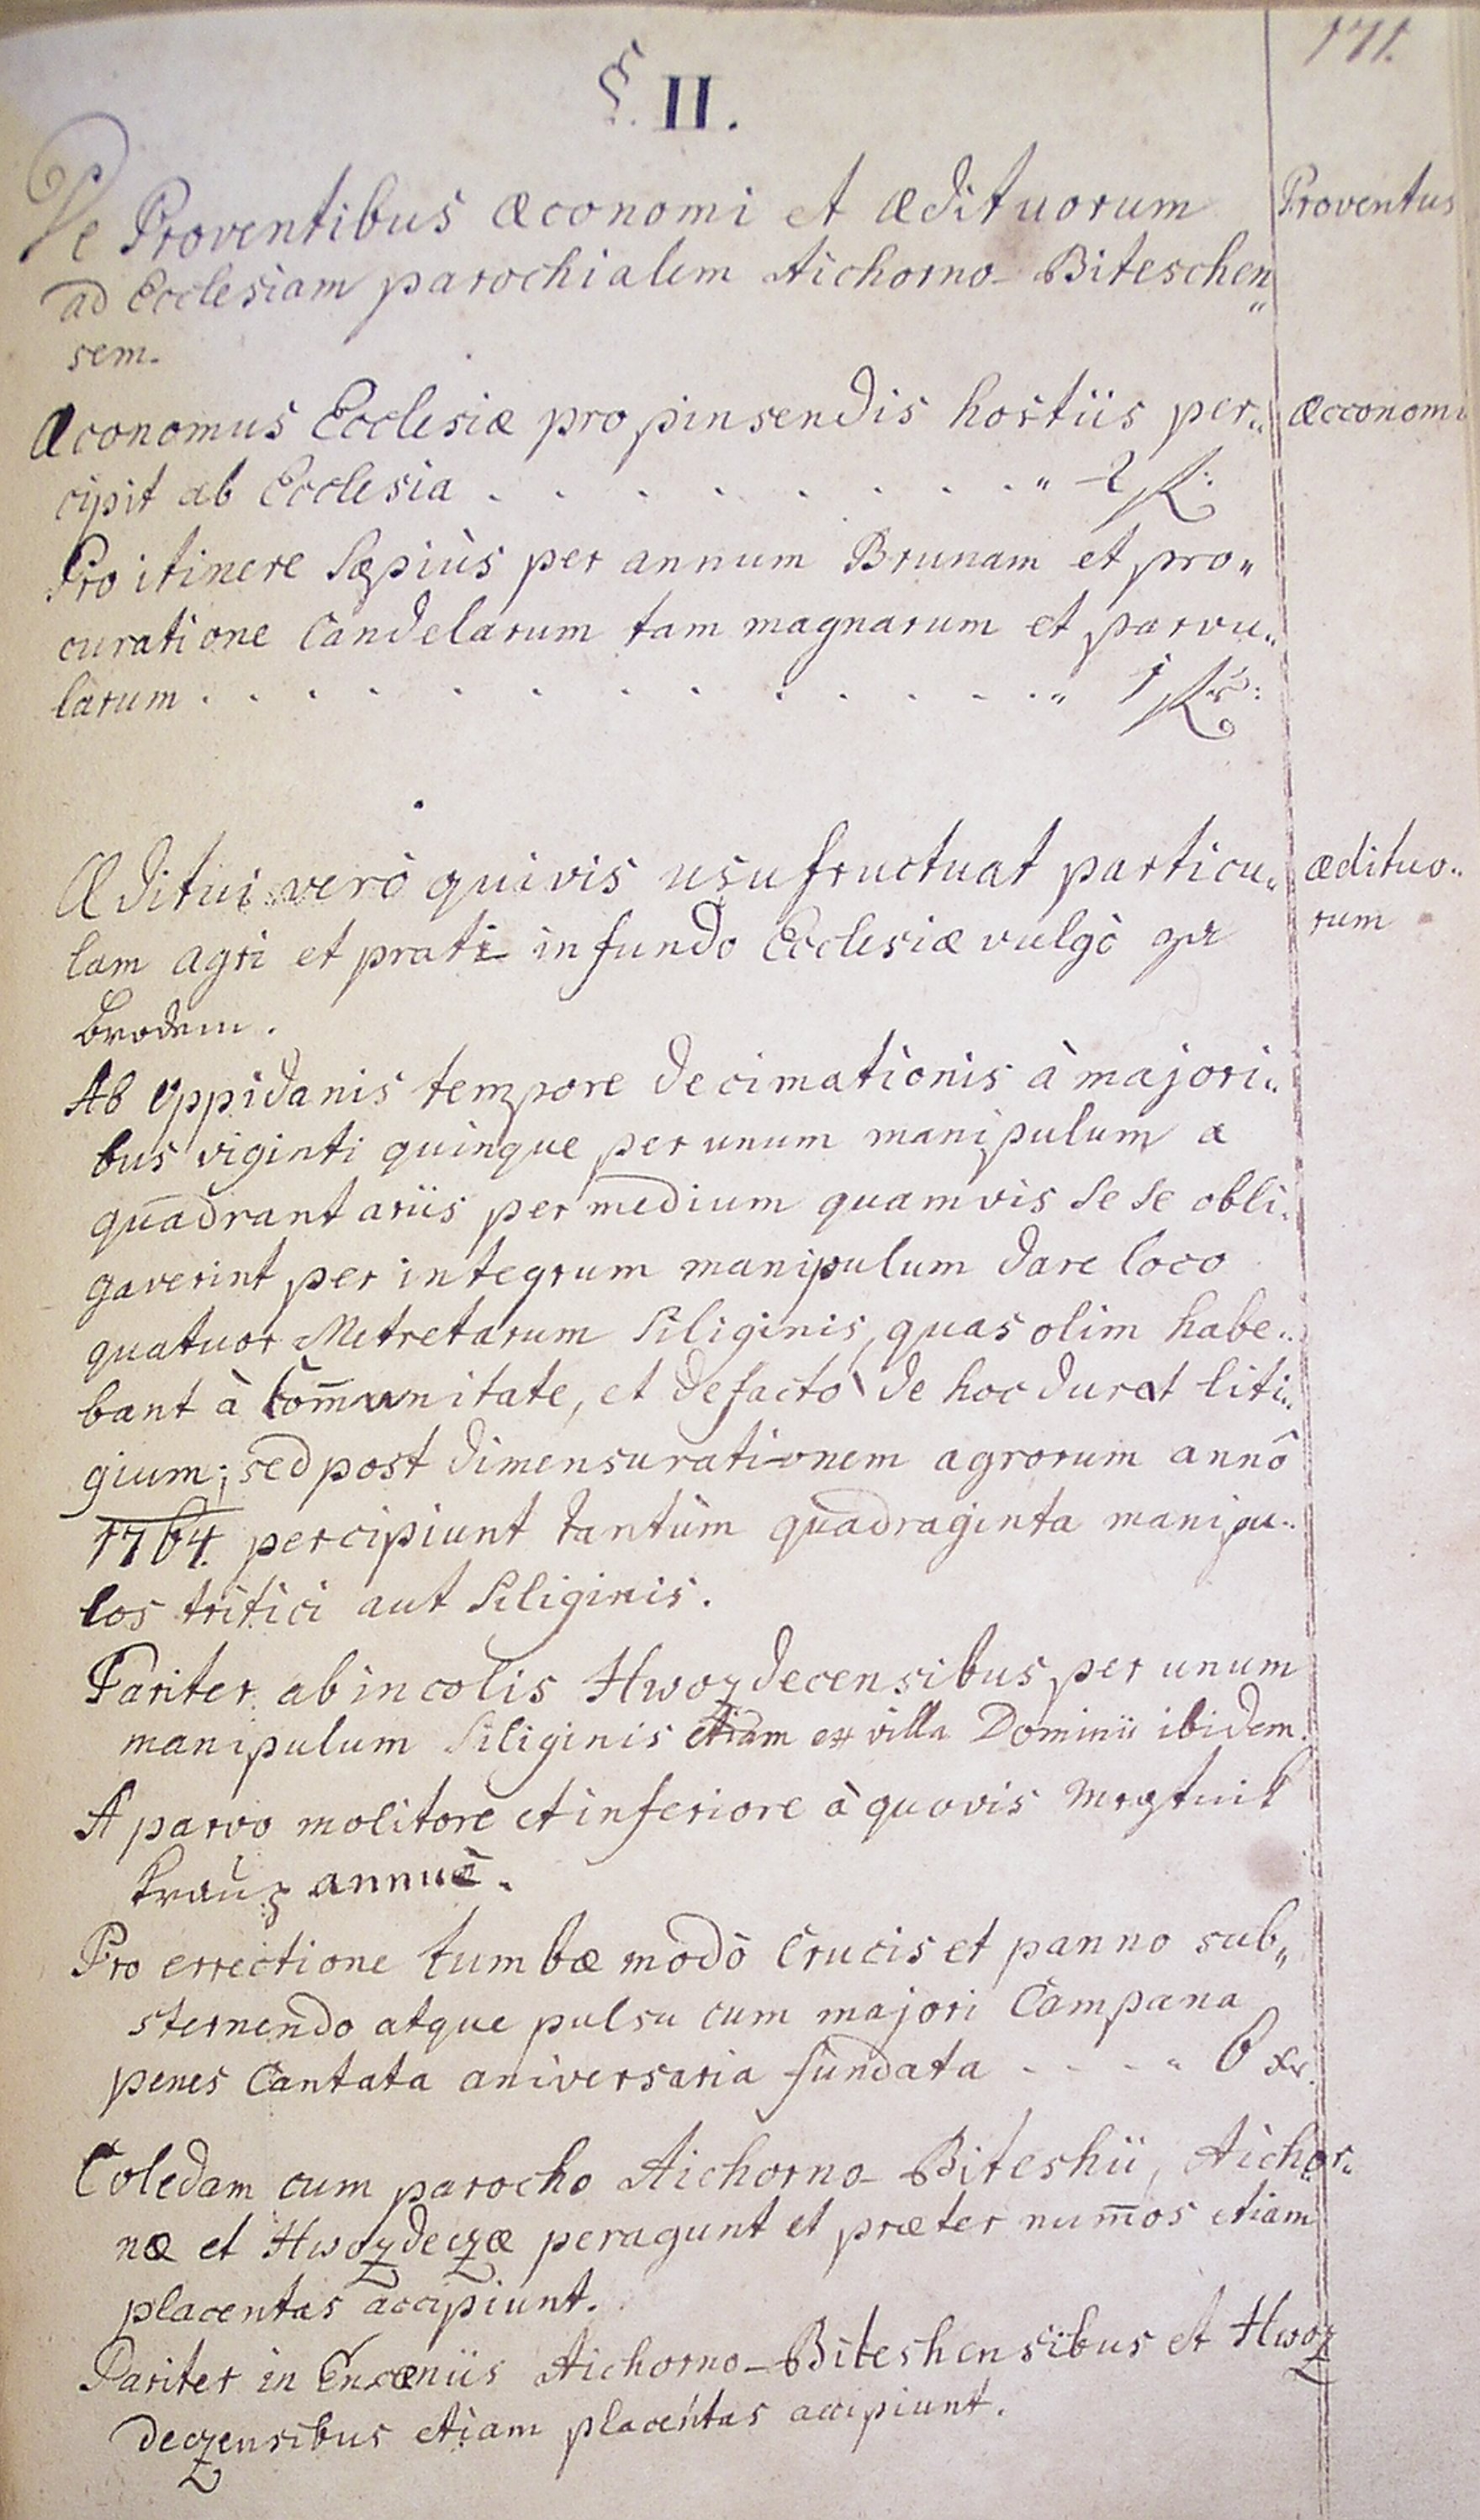 171.
§. II.
De Proventibus æconomi et ædituorum
Proventus
ad Ecclesiam parochialem Aichorno-Biteschen„
sem.
Æconomus Ecclesiæ pro pinsendis hostiis per„
æcconomi
cipit ab Ecclesia . . . . . . . . . „ 2 fl:
Pro itinere sæpiùs per annum Brunam et pro„
curatione candelarum tam magnarum et parvu„
larum . . . . . . . . . . . . . „ 1 fl:
Æditui verò quivis usufructuat particu„
ædituo„
lam agri et prati in fundo Ecclesiæ vulgò za
rum
Brodem.
Ab oppidanis tempore decimationis à majori„
bus viginti quinque per unum manipulum a
quadrantariis per medium quamvis sese obli„
gaverint per integrum manipulum dare loco
quatuor Metretarum siliginis, quas olim habe„
bant à Com̅unitate, et defacto de hoc durat liti„
gium; sed post dimensurationem agrorum annô
1764. percipiunt tantùm quadraginta manipu„
los tritici aut siliginis.
Pariter ab incolis Hwozdecensibus per unum
manipulum siliginis etiam ex villa Dominii ibidem.
A parvo molitore et inferiore à quovis
annuè.
Pro errectione tumbæ modò crucis et panno sub„
sternendo atque pulsu cum majori Campana
penes Cantata aniversaria fundata . . . „ 6 xr.
Coledam cum parocho Aichorno-Biteshii, Aichor„
næ et Hwozdeczæ peragunt et præter num̅os etiam
placentas accipiunt.
Pariter in Encæniis Aichorno-Biteshensibus et Hwoz
deczensibus etiam placentas accipiunt.